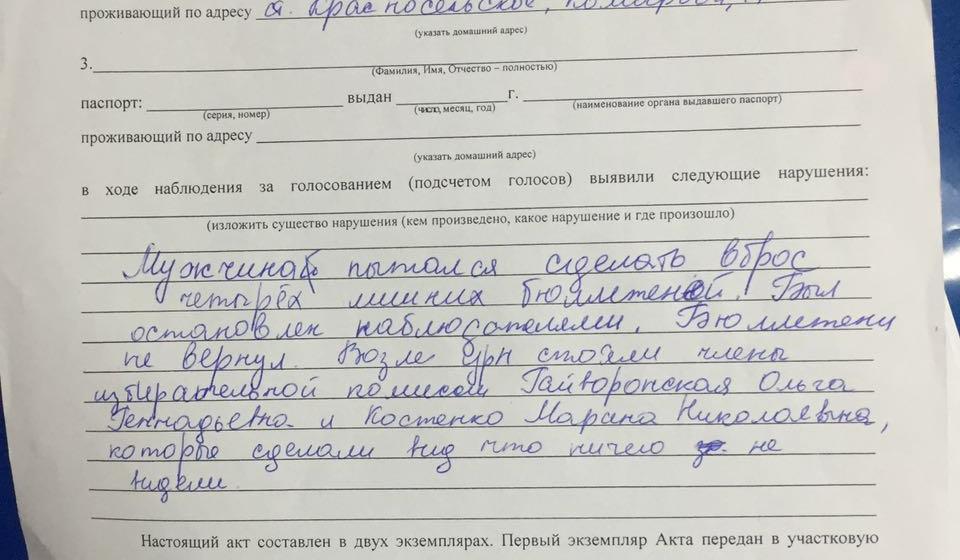 проживающий по адресу ст. Красносельское,
(указать домашний адрес)
3.
(Фамилия, Имя, Отчество – полностью)
паспорт: выдан г.
(серия, номер) (число, месяц, год) (наименование органа выдавшего паспорт)
проживающий по адресу
(указать домашний адрес)
в ходе наблюдения за голосованием (подсчетом голосов) выявили следующие нарушения:
(изложить существо нарушения (кем произведено, какое нарушение и где произошло)
Мужчина пытался сделать вброс
четырёх лишних бюллетеней. Был
остановлен наблюдателями. Бюллетени
не вернул. Возле урн стояли члены
избирательной комисси Гайворонская Ольга
Геннадьевна и Костенко Марина Николаевна,
которые сделали вид что ничего не
видели.
Настоящий акт составлен в двух экземплярах. Первый экземпляр Акта передан в участковую